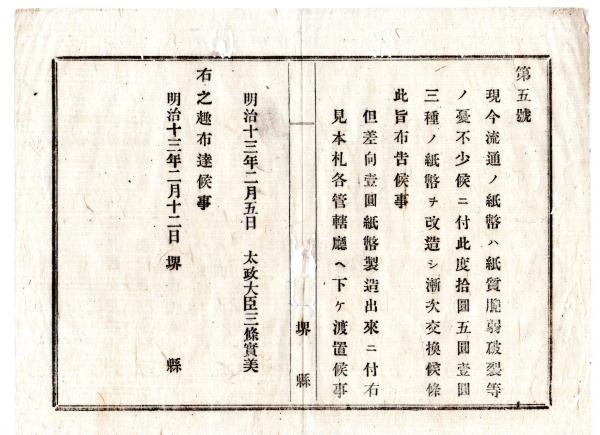 第五號
現今流通ノ紙幣ハ紙質脆弱破裂等
ノ憂不少候ニ付此度拾圓五圓壹圓
三種ノ紙幣ヲ改造シ漸次交換候條
此旨布告候事
但差向壹圓紙幣製造出來ニ付右
見本札各管轄廳ヘ下ケ渡置候事
堺縣
明治十三年二月五日 太政大臣三條實美
右之趣布達候事
明治十三年二月十二日 堺縣